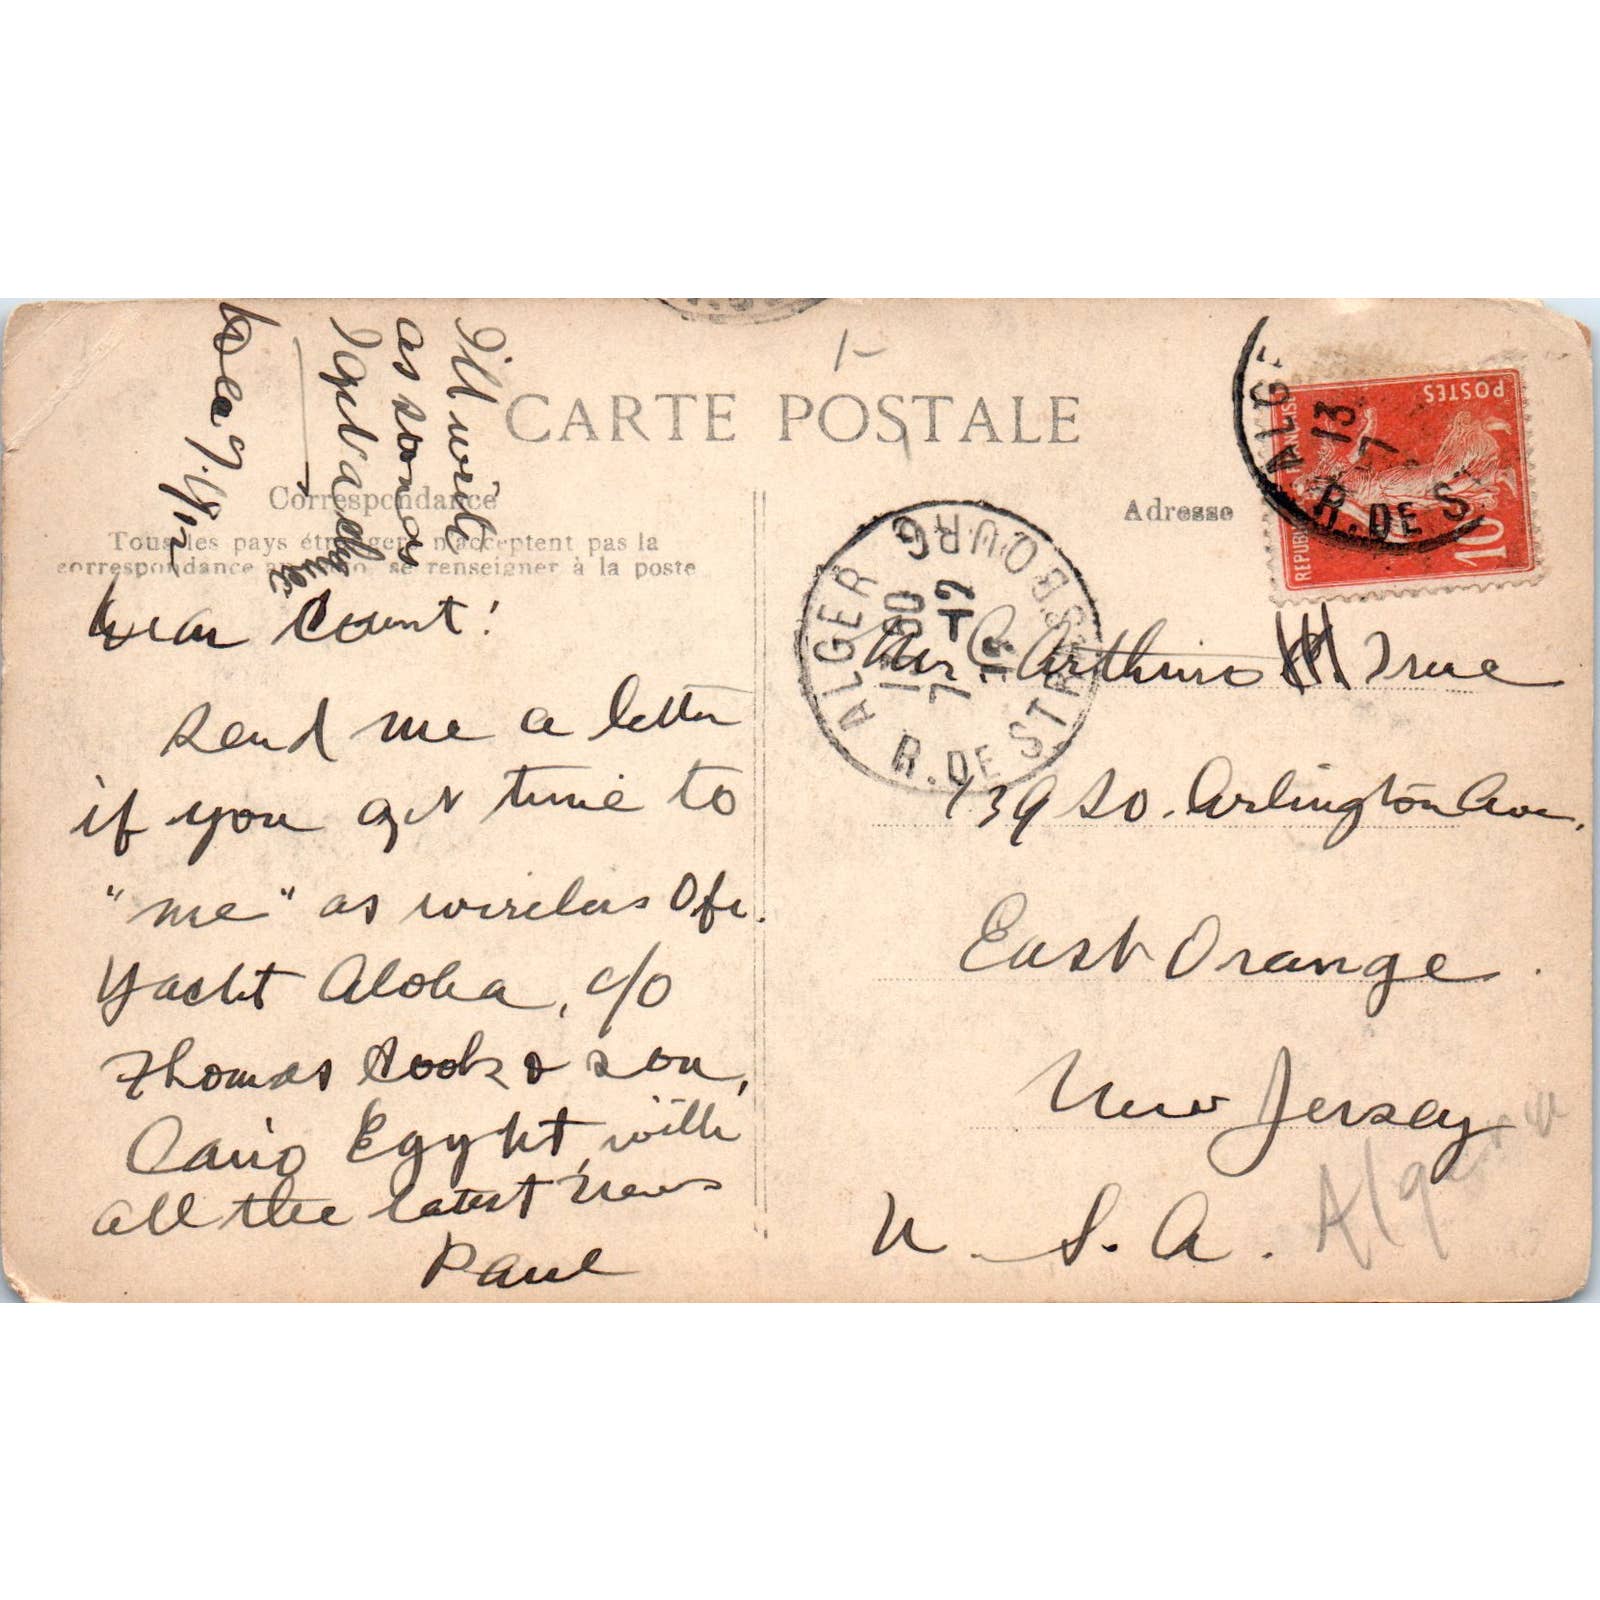 CARTE POSTALE
Correspondance
Adresse
Tous les pays étrangers n'acceptent pas la
correspondance au se renseigner à la poste
I'll write
as soon as
I get a
Dear Count!
send me a letter
if you get time to
"me" as wireless Ofr.
Yacht Aloha, c/o
Thomas Cook & Son,
Cairo Egypt, with
all the latest news
Paul
Mr. C. Arthur True
139 So. Arlington Ave.
East Orange
New Jersey
U. S. A.
Algeria
ALGER R. DE STRASBOURG
POSTES
10
ALGER
13
7
R. DE S